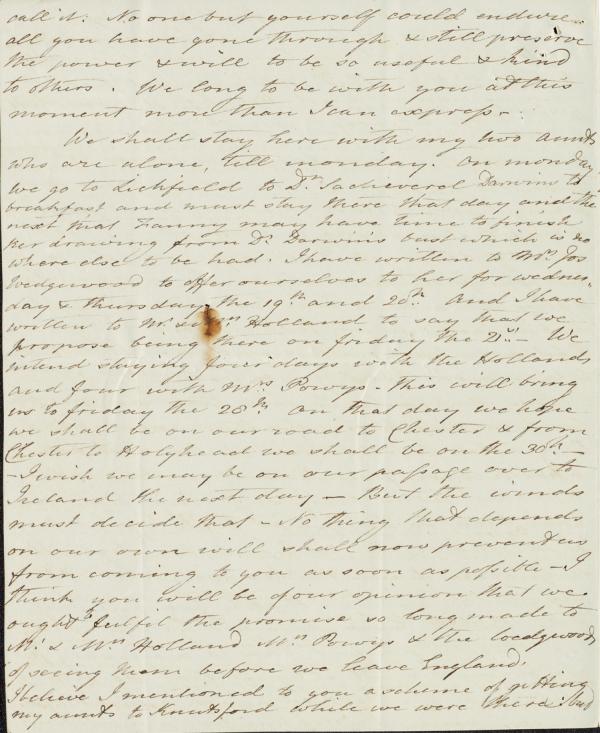 call it. No one but yourself could endure
all you have gone through & still preserve
the power & will to be so useful & kind
to others. We long to be with you at this
moment more than I can express.
We shall stay here with my two aunts
who are alone, till monday. On monday
we go to Lichfield to Dr. Sacheverel Darwins to
breakfast and must stay there that day and the
next that Fanny may have time to finish
her drawing from Dr. Darwin's bust which is no
where else to be had. I have written to Mrs. Jos
Wedgewood to offer ourselves to her for wednes-
day & thursday the 19th and 20th. And I have
written to Mr. & Mrs Holland to say that we
propose being there on friday the 21st - We
intend staying four days with the Hollands
and four with Mrs Powys - this will bring
us to friday the 28th. On that day we hope
we shall be on our road to Chester & from
Chester to Holyhead we shall be on the 30th -
- I wish we may be on our passage over to
Ireland the next day - But the winds
must decide that - Nothing that depends
on our own will shall now prevent us
from coming to you as soon as possible - I
think you will be of our opinion that we
ought to fulfil the promise so long made to
Mr. & Mrs Holland Mrs Powys & the Wedgwoods
of seeing them before we leave England.
I believe I mentioned to you a scheme of getting
my aunts to Knutsford while we were there but